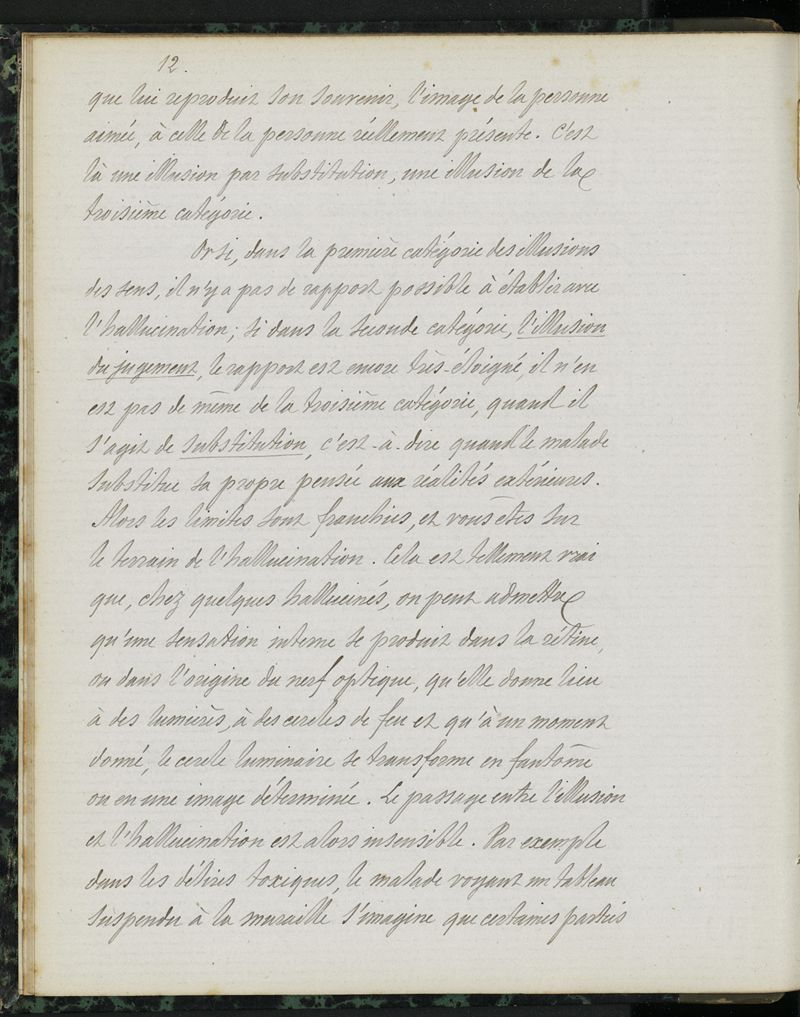 12.
que lui reproduit son souvenir, l'image de la personne
aimée, à celle de la personne réellement présente. C'est
là une illusion par substitution, une illusion de la
troisième catégorie.
Or si, dans la première catégorie des illusions
des sens, il n'y a pas de rapport possible à établir avec
l'hallucination; si dans la seconde catégorie, l'illusion
du jugement, le rapport est encore très-éloigné, il n'en
est pas de même de la troisième catégorie, quand il
s'agit de substitution, c'est-à-dire quand le malade
substitue sa propre pensée aux réalités extérieures.
Alors les limites sont franchies, et vous êtes sur
le terrain de l'hallucination. Cela est tellement vrai
que, chez quelques hallucinés, on peut admettre
qu'une sensation interne se produit dans la rétine,
ou dans l'origine du nerf optique, qu'elle donne lieu
à des lumières, à des cercles de feu et qu'à un moment
donné, le cercle luminaire se transforme en fantôme
ou en une image déterminée. Le passage entre l'illusion
et l'hallucination est alors insensible. Par exemple
dans les délires toxiques, le malade voyant un tableau
suspendu à la muraille s'imagine que certaines parties